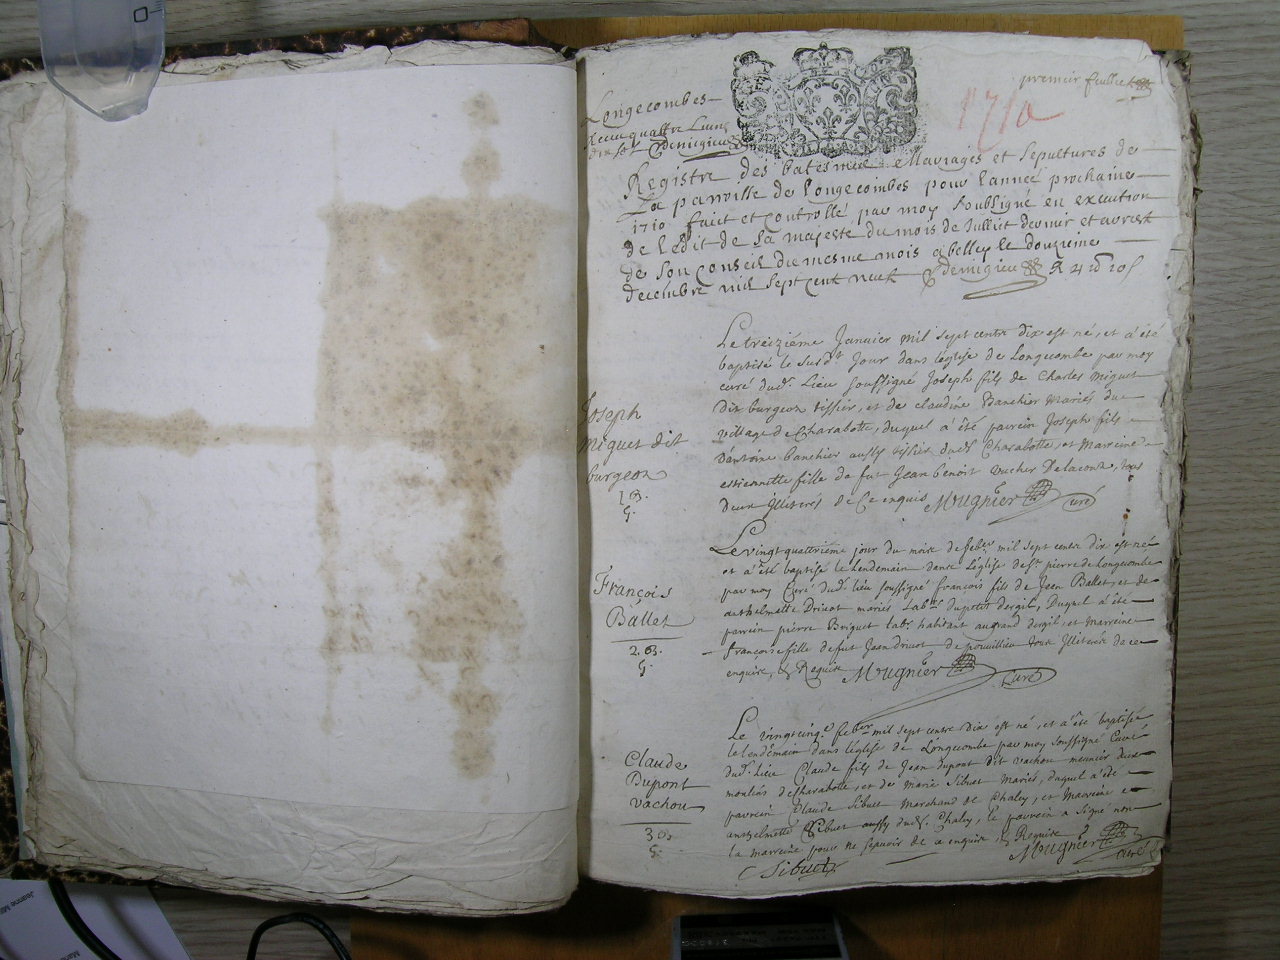 premeir feullet
1710
Longecombes
Receu quattre Livres
dix sols Demigieu
Registre des batesmes Mariages et sepultures de
La parroisse de longecombes pour lannée prochaine
1710 faict et controllé par moy soubsigné en execution
de lédit de sa majesté du mois de Julliet dernier et arrest
de son Conseil du mesme mois a belley le douzieme
decembre mil sept cent neuf Demigieu R 4
Joseph
Miquet dit
burgeon
1 B.
G.
Le treiziéme Janvier mil sept cents dix est né, et a été
baptisé le susdt Jour dans léglise de Longecombe par moy
curé dud. Lieu soussigné Joseph fils de Charles Miquet
dit burgeon tissier, et de claudine Banchier Mariés du
village de Charabotte, duquel a été parrein Joseph fils
dantoine banchier aussy tissier dud. Charabotte, et Marreine
estiennette fille de fut Jean benoit vucher Delacoux, tous
deux Illiterés de Ce enquis Mugnier curé
François
Ballet
2. B.
G.
Le vingt quattriéme jour du mois de feber mil sept cents dix est né
et a été baptisé le lendemain dans Léglise de St pierre de Longecombe
par moy Curé dud. lieu soussigné francois fils de Jean Ballet, et de
anthelmette Drivot mariés Labrs du petit dergil, Duquel a été
parrein pierre Briquet labr habitant au grand dergil, et marreine
francoise fille de fut Jean drivot de pouvillieu tous Illiterés de ce
enquis, & Requis Mugnier curé
Claude
Dupont
Vachou
3 B.
G.
Le vingtcinq.e feber mil sept cents dix est né, et a été baptisé
le lendemain dans léglise de Longecombe par moy soussigné Curé
dud. Lieu Claude fils de Jean dupont dit vachou meunier aux
moulins de Charabotte, et de Marie Sibuet Mariés, duquel a été
parrein Claude Sibuet Marchand de Chaley, et Marreine
anthelmette Sibuet aussy dud. Chaley, le parrein a signé non
la marreine pour ne sçavoir de ce enquise & Requise
Sibuet Mugnier curé